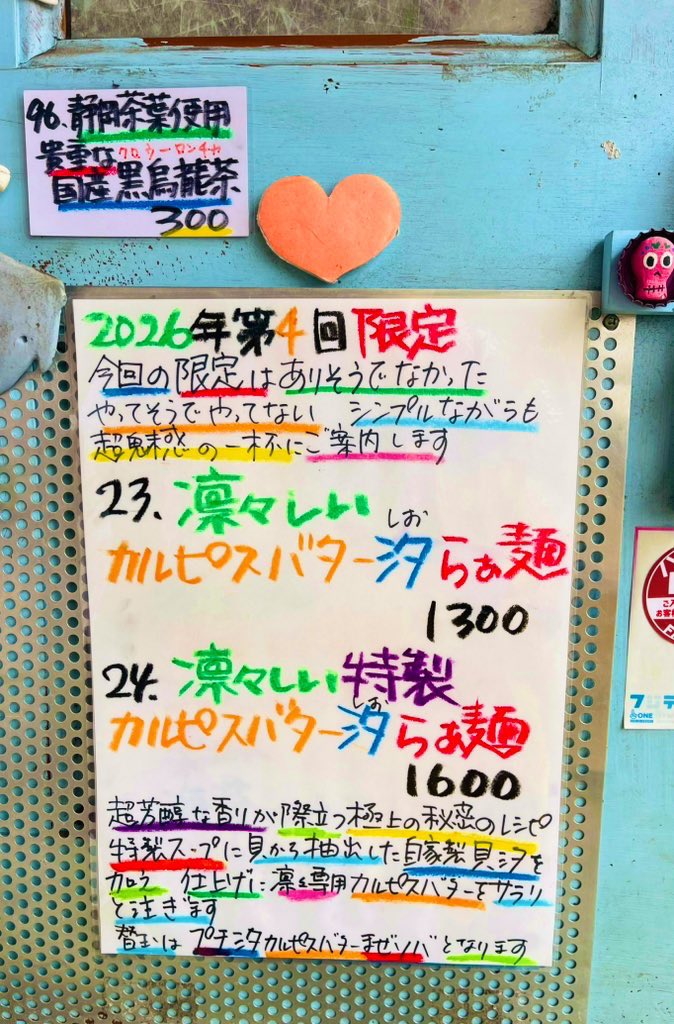 96.静岡茶葉使用
貴重なクロウーロンチャ
国産黒烏龍茶
300
2026年第4回限定
今回の限定はありそうでなかった
やってそうでやってない シンプルながらも
超魅惑の一杯にご案内します
23.凛々しい
しお
カルピスバター汐らぁ麺
1300
24.凛々しい特製
しお
カルピスバター汐らぁ麺
1600
超芳醇な香りが際立つ極上の秘密のレシピ
特製スープに貝から抽出した自家製貝汐を
加え 仕上げに凛々専用カルピスバターをサラリ
と注ぎます
替玉はプチニタカルピスバターまぜソバとなります
ONE